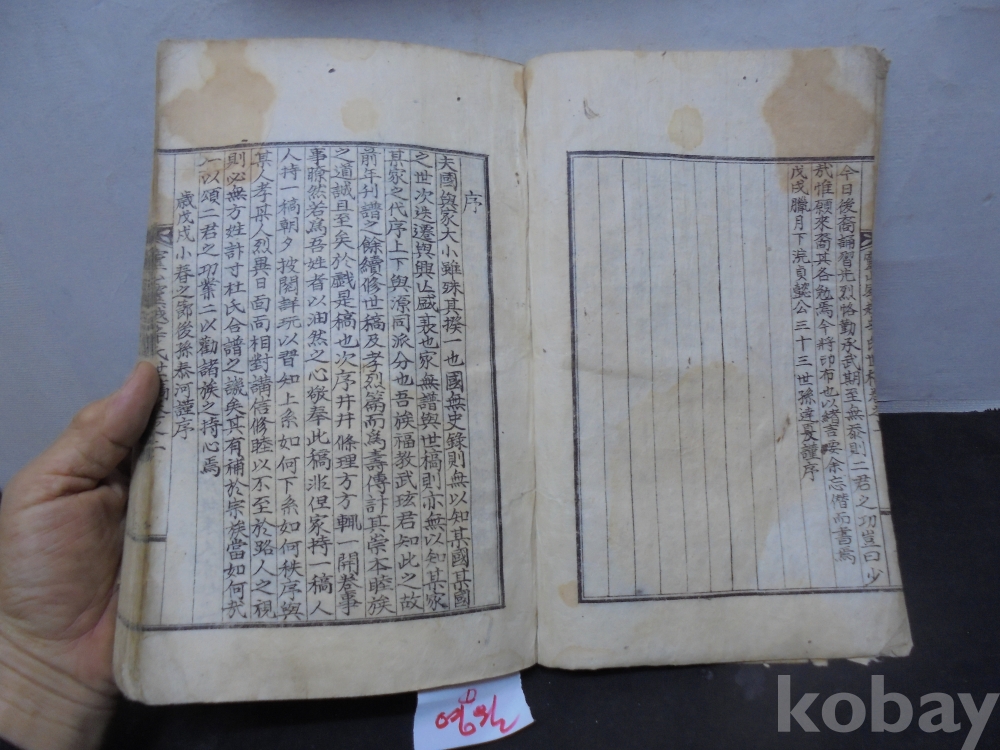 今日後裔誦習先烈恪勤承武期至無忝則二君之功豈曰少
㢤惟願來裔其各勉焉今將印布也以 余忘僭而書焉
戊戌臘月下浣貞懿公三十三世孫達 謹序
序
夫國與家大小雖殊其揆一也國無史錄則無以知其國其國
之世次迭遷與興亡盛衰也家無譜與世稿則亦無以知其家
其家之代序上下與源同派分也吾族福教武玹君知此之故
前年刊譜之餘續修世稿及孝烈篇而爲壽傳計其崇本睦族
之道誠且至矣於戱是稿也次序井井條理方方輒一開卷事
事瞭然若爲吾姓者以油然之心敬奉此稿洮但家持一稿人
人持一稿朝夕披閱詳玩以習知上系如何下系如何秩序與
某人孝某人烈異日面面相對講信修睦以不至於路人之視
則必無方姓計寸杜氏合譜之譏矣其有補於宗族當如何㢤
一以頌二君之功業二以勸諸族之持心焉
歲戊戌小春之節後孫泰河謹序
영월
kobay